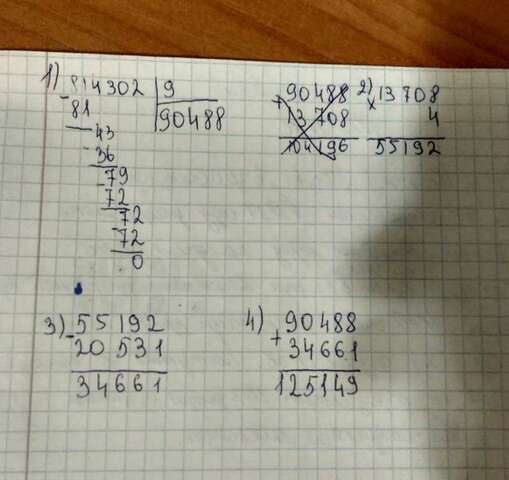 1) 814302 | 9
- 81 90488
- 43
36
- 79
72
- 72
72
0
+ 90488
13 708
104196
2) × 13 708
4
55192
3) - 55192
20 531
34661
4) + 90488
34661
125149